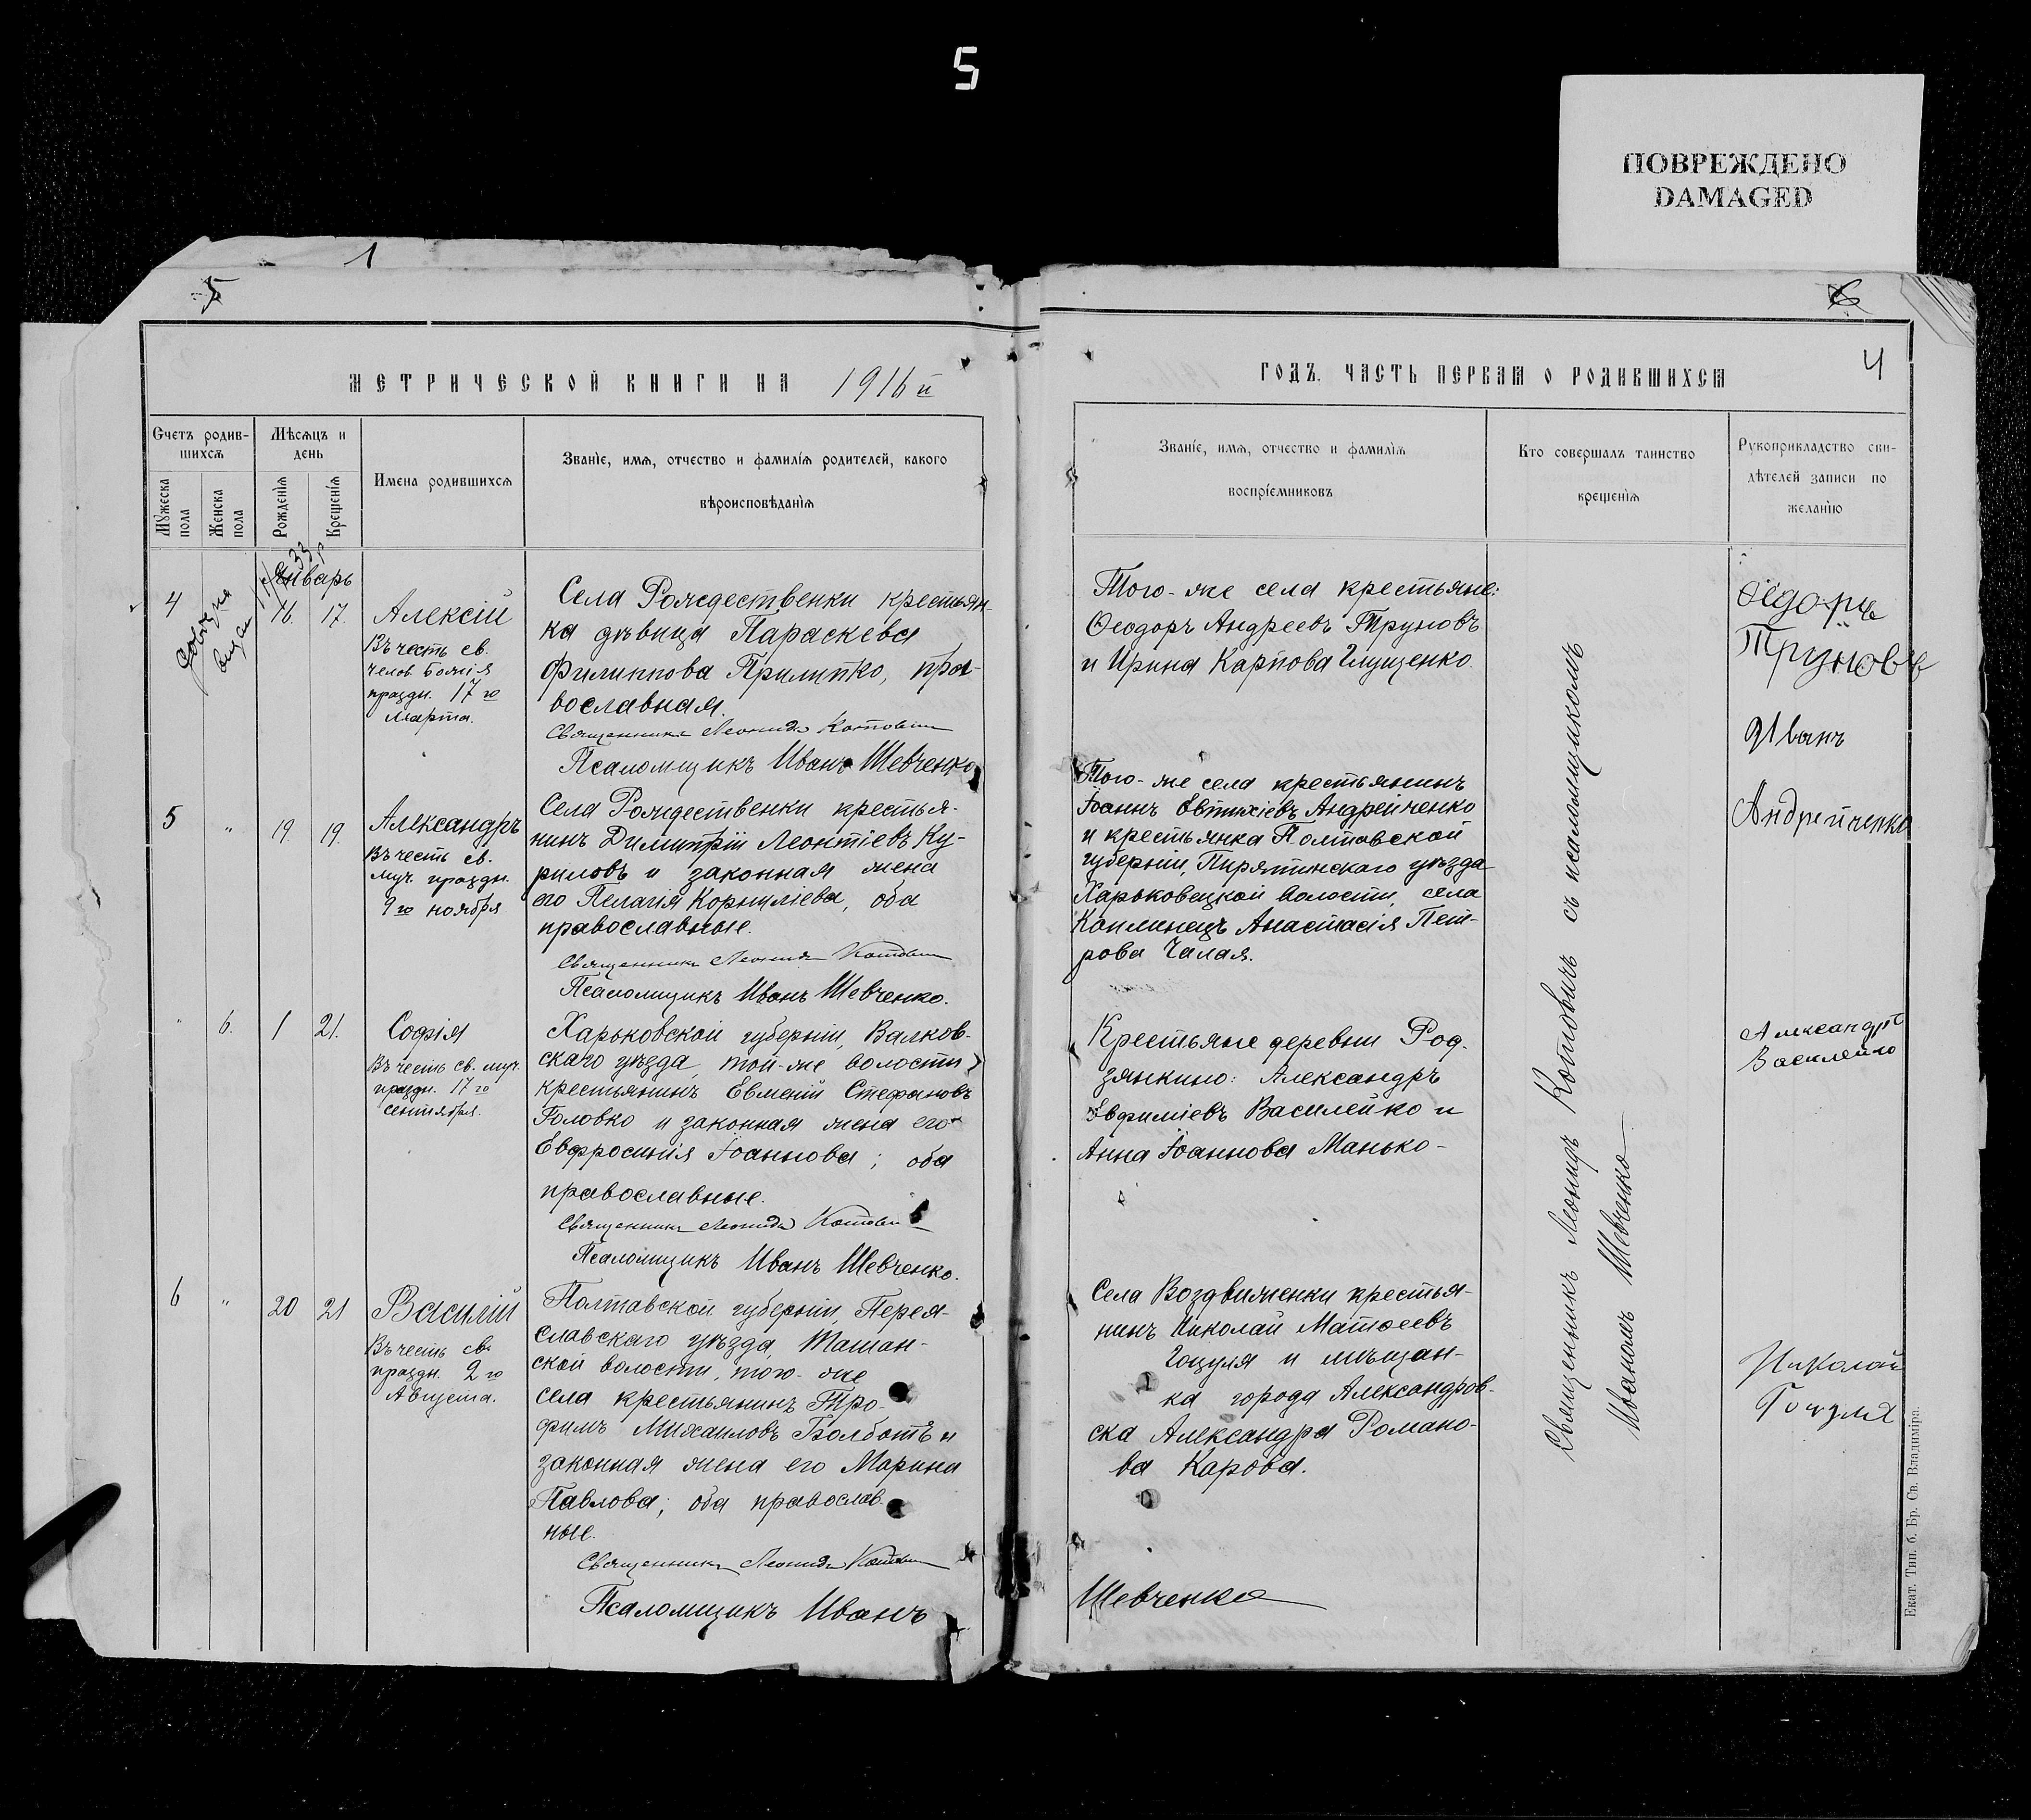 5
ПОВРЕЖДЕНО
DAMAGED
1
5
6
4
МЕТРИЧЕСКОЙ КНИГИ НА 1916 й
Счетъ родив-
шихся
Мѣсяцъ и
день
Мужеска
пола
Женска
пола
Рожденія
Крещенія
Имена родившихся
Званіе, имя, отчество и фамилія родителей, какого
вѣроисповѣданія
Январь
4
16. 17.
Алексій
Въ честь св.
челов. Божія
праздн. 17 го
Марта.
Села Рождественки крестьян-
ка дѣвица Параскева
Филиппова Прилипко, пра-
вославная.
Священникъ Леонидъ Котович
Псаломщикъ Иванъ Шевченко
5 " 19. 19.
Александръ
Въ честь св.
муч. праздн.
9 го ноября
Села Рождественки крестья-
нинъ Димитрій Леонтіевъ Ку-
риловъ и законная жена
его Пелагія Корниліева, оба
православные.
Священникъ Леонидъ Котович
Псаломщикъ Иванъ Шевченко.
" 6. 1 21.
Софія
Въ честь св. муч.
праздн. 17 го
сентября.
Харьковской губерніи, Валков-
скаго уѣзда, той-же волости
крестьянинъ Евменій Стефановъ
Головко и законная жена его
Евфросинія Іоаннова; оба
православные.
Священникъ Леонидъ Котович
Псаломщикъ Иванъ Шевченко.
6 " 20 21
Василій
Въ честь св.
праздн. 2 го
Августа.
Полтавской губерніи, Перея-
славскаго уѣзда, Ташан-
ской волости, того-же
села крестьянинъ Тро-
фимъ Михаиловъ Болботъ и
законная жена его Марина
Павлова; оба православ-
ные.
Священникъ Леонидъ Котович
Псаломщикъ Иванъ
ГОДЪ. ЧАСТЬ ПЕРВАЯ О РОДИВШИХСЯ
Званіе, имя, отчество и фамилія
воспріемниковъ
Кто совершалъ таинство
крещенія
Рукоприкладство сви-
дѣтелей записи по
желанію
Того-же села крестьяне:
Ѳеодоръ Андреевъ Труновъ
и Ирина Карпова Глущенко.
Того-же села крестьянинъ
Іоаннъ Евтихіевъ Андрейченко
и крестьянка Полтавской
губерніи, Пирятинскаго уѣзда
Харьковецкой волости, села
Каплинецъ Анастасія Пет-
рова Чалая.
Крестьяне деревни Род-
зянкино: Александръ
Евфиміевъ Василейко и
Анна Іоаннова Манько-
Села Воздвиженки крестья-
нинъ Николай Матѳеевъ
Гоцуля и мѣщан-
ка города Александров-
ска Александра Романо-
ва Карова.
Шевченко
Священникъ Леонидъ Котовичъ съ псаломщикомъ
Иваномъ Шевченко
Ѳедоръ
Труновъ
Иванъ
Андрейченко
Александръ
Василейко
Николай
Гоцуля
Екат. Тип. б. Бр. Св. Владиміра.